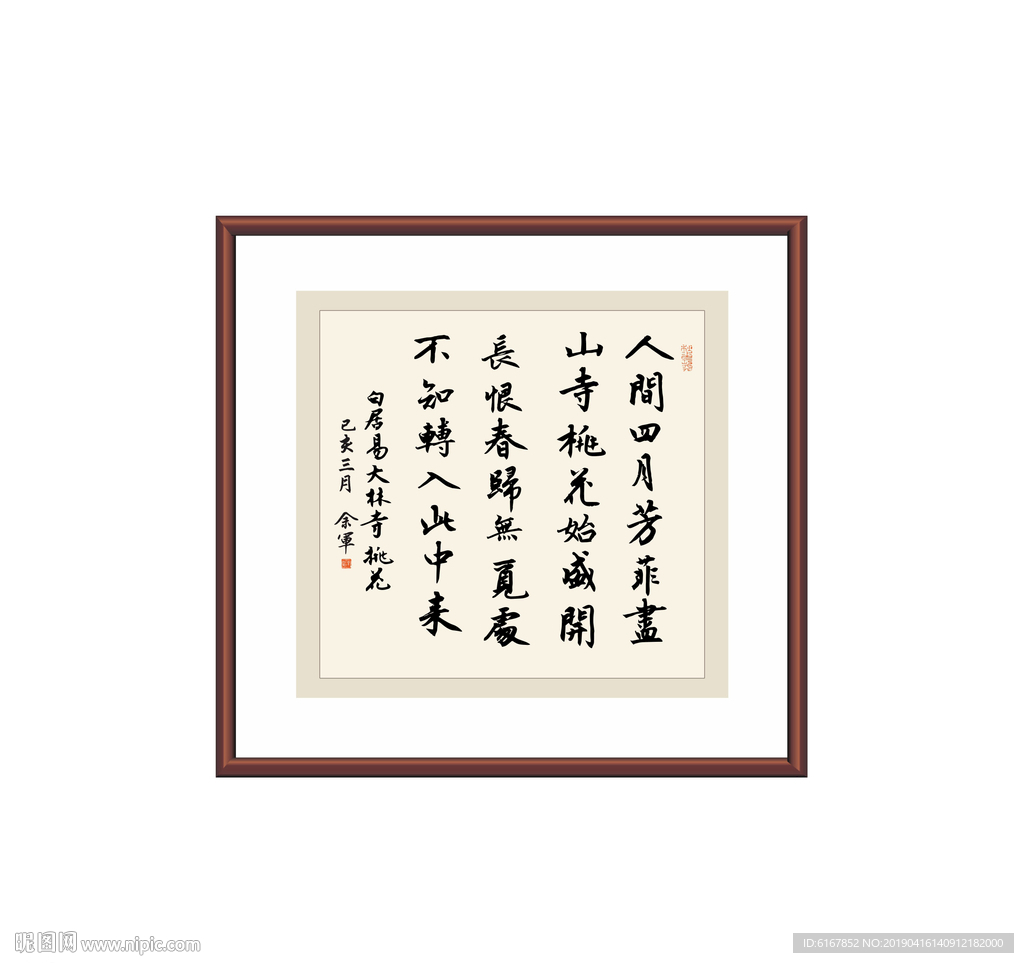 人間四月芳菲盡
山寺桃花始盛開
長恨春歸無覓處
不知轉入此中来
白居易大林寺桃花
己亥三月 余軍
昵图网 www.nipic.com
ID:6167852 NO:20190416140912182000